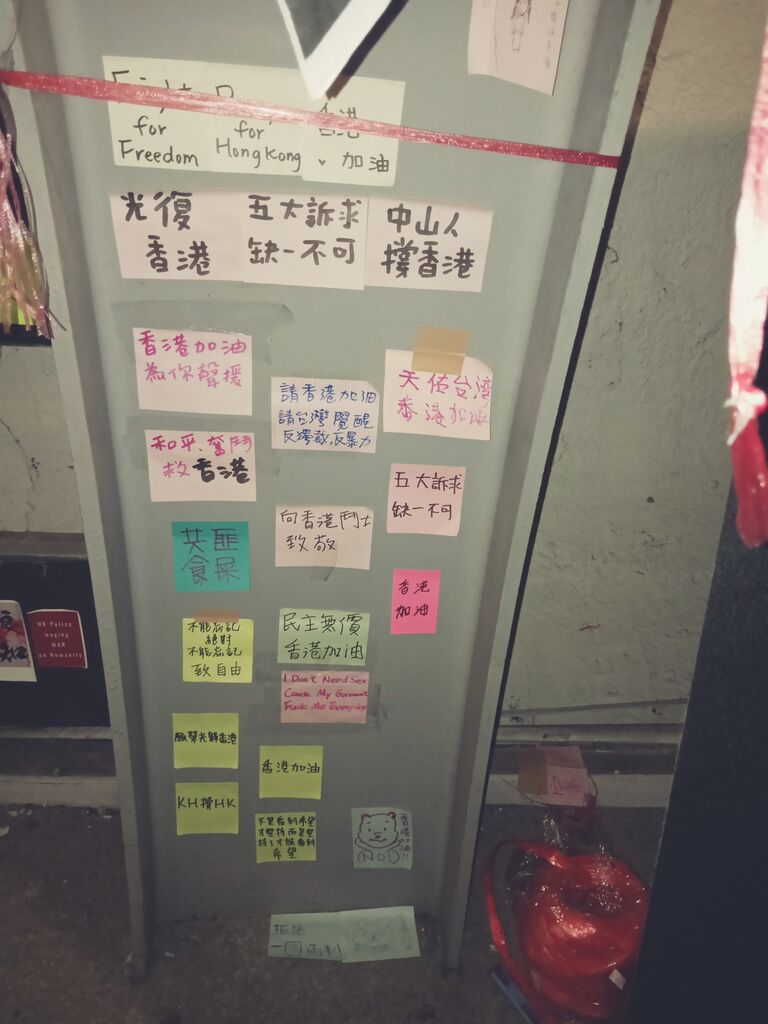 Fight
for
Freedom
for
Hong Kong
香港
加油
光復
香港
五大訴求
缺一不可
中山人
撐香港
香港加油
為你聲援
請香港加油
請台灣覺醒
反獨裁,反暴力
天佑台灣
香港加油
和平、奮鬥
救香港
五大訴求
缺一不可
向香港鬥士
致敬
共匪
食屎
香港
加油
不能忘記
絕對
不能忘記
致自由
民主無價
香港加油
I Don't Need Sex
Cause My Goverment
Fuck Me Everyday
HK Police
waging
WAR
on Humanity
願榮光歸香港
香港加油
KH撐HK
不是看到希望
才堅持而是堅
持了才能看到
希望
香港加油!!
(NO!)
拒絕
一国兩制